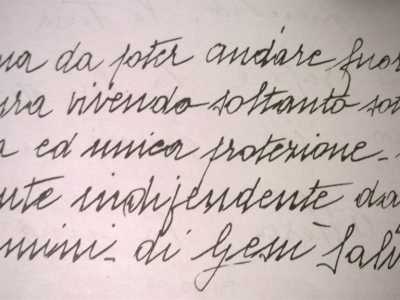 da poter andare fuor
vivendo soltanto
ed unica protezione -
indipendente da
mini - di Gesù Sal